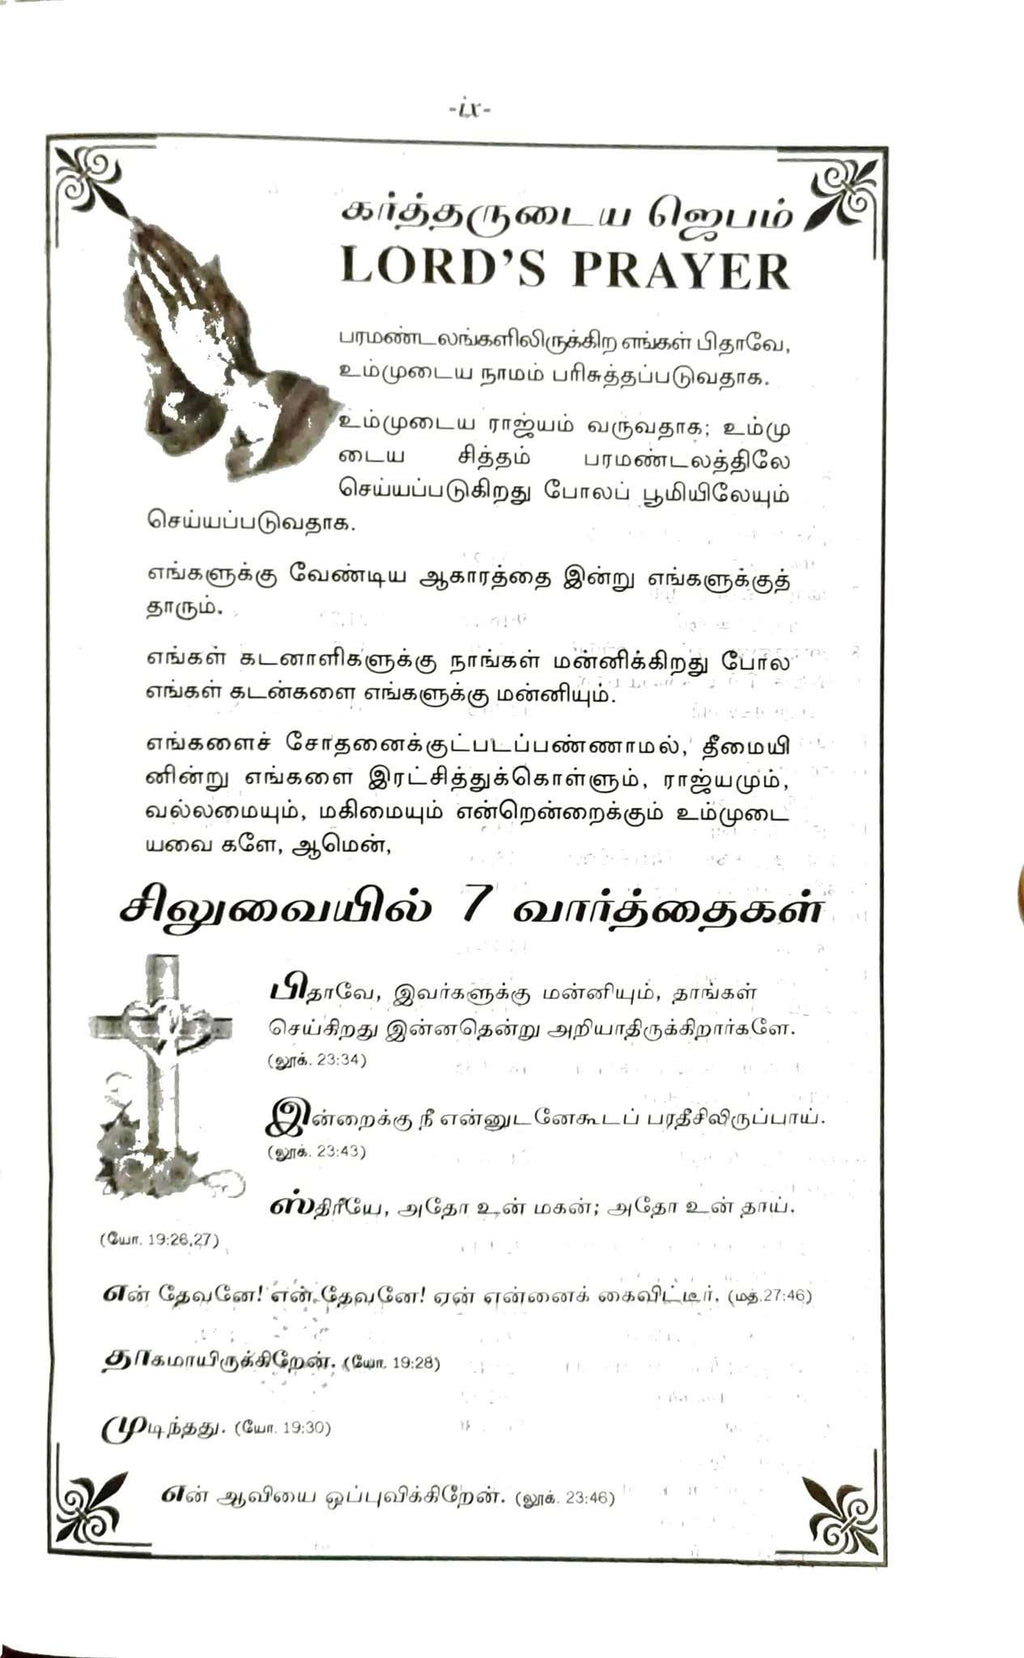 -ix-
கர்த்தருடைய ஜெபம்
LORD'S PRAYER
பரமண்டலங்களிலிருக்கிற எங்கள் பிதாவே,
உம்முடைய நாமம் பரிசுத்தப்படுவதாக.
உம்முடைய ராஜ்யம் வருவதாக; உம்மு
டைய சித்தம் பரமண்டலத்திலே
செய்யப்படுகிறது போலப் பூமியிலேயும்
செய்யப்படுவதாக.
எங்களுக்கு வேண்டிய ஆகாரத்தை இன்று எங்களுக்குத்
தாரும்.
எங்கள் கடனாளிகளுக்கு நாங்கள் மன்னிக்கிறது போல
எங்கள் கடன்களை எங்களுக்கு மன்னியும்.
எங்களைச் சோதனைக்குட்படப்பண்ணாமல், தீமையி
னின்று எங்களை இரட்சித்துக்கொள்ளும், ராஜ்யமும்,
வல்லமையும், மகிமையும் என்றென்றைக்கும் உம்முடை
யவை களே, ஆமென்,
சிலுவையில் 7 வார்த்தைகள்
பிதாவே, இவர்களுக்கு மன்னியும், தாங்கள்
செய்கிறது இன்னதென்று அறியாதிருக்கிறார்களே.
(லூக். 23:34)
இன்றைக்கு நீ என்னுடனேகூடப் பரதீசிலிருப்பாய்.
(லூக். 23:43)
ஸ்திரீயே, அதோ உன் மகன்; அதோ உன் தாய்.
(யோ. 19:26,27)
என் தேவனே! என் தேவனே! ஏன் என்னைக் கைவிட்டீர். (மத்.27:46)
தாகமாயிருக்கிறேன். (யோ. 19:28)
முடிந்தது. (யோ. 19:30)
என் ஆவியை ஒப்புவிக்கிறேன். (லூக். 23:46)